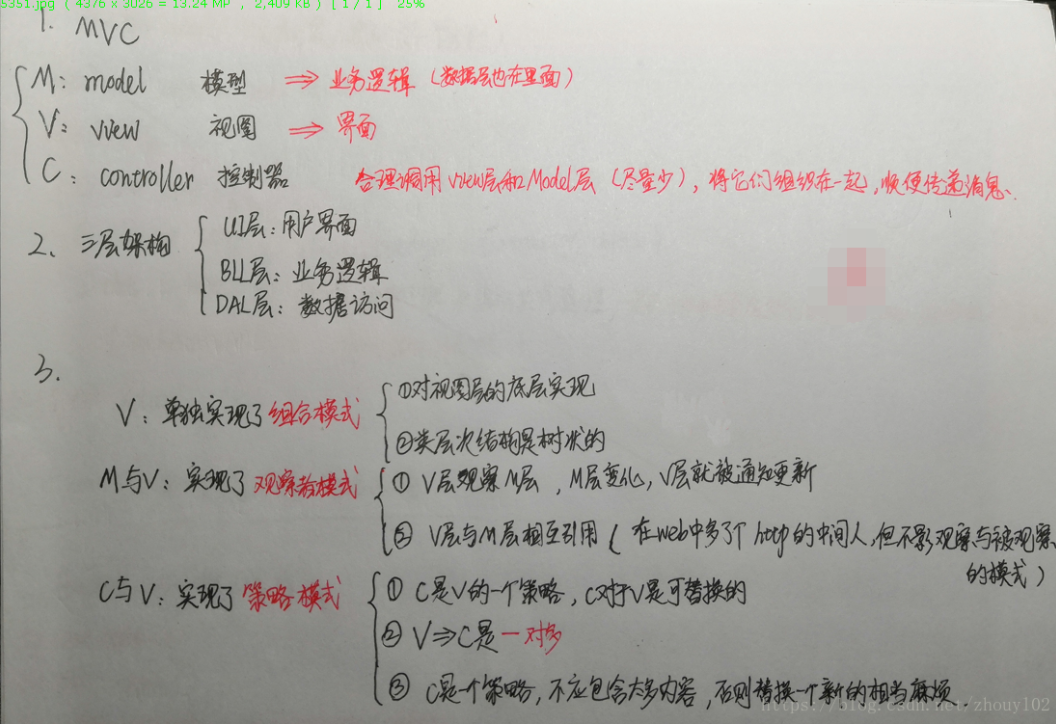 5351.jpg ( 4376 x 3026 = 13.24 MP , 2,409 KB ) [ 1 / 1 ] 25%
1. MVC
M: model 模型 ⇒ 业务逻辑 (数据层也在里面)
V: view 视图 ⇒ 界面
C: controller 控制器 合理调用view层和Model层 (尽量少), 将它们组织在一起, 顺便传递消息.
2、三层架构
UI层: 用户界面
BLL层: 业务逻辑
DAL层: 数据访问
3.
V: 单独实现了组合模式
①对视图层的底层实现
②类层次结构是树状的
M与V: 实现了观察者模式
① V层观察M层, M层变化, V层就被通知更新
② V层与M层相互引用 ( 在web中多了个http的中间人, 但不影观察与被观察
的模式)
C与V: 实现了策略模式
① C是V的一个策略, C对于V是可替换的
② V⇒C是一对多
③ C是一个策略, 不应包含太多内容, 否则替换一个新的相当麻烦.
https://blog.csdn.net/zhouy102